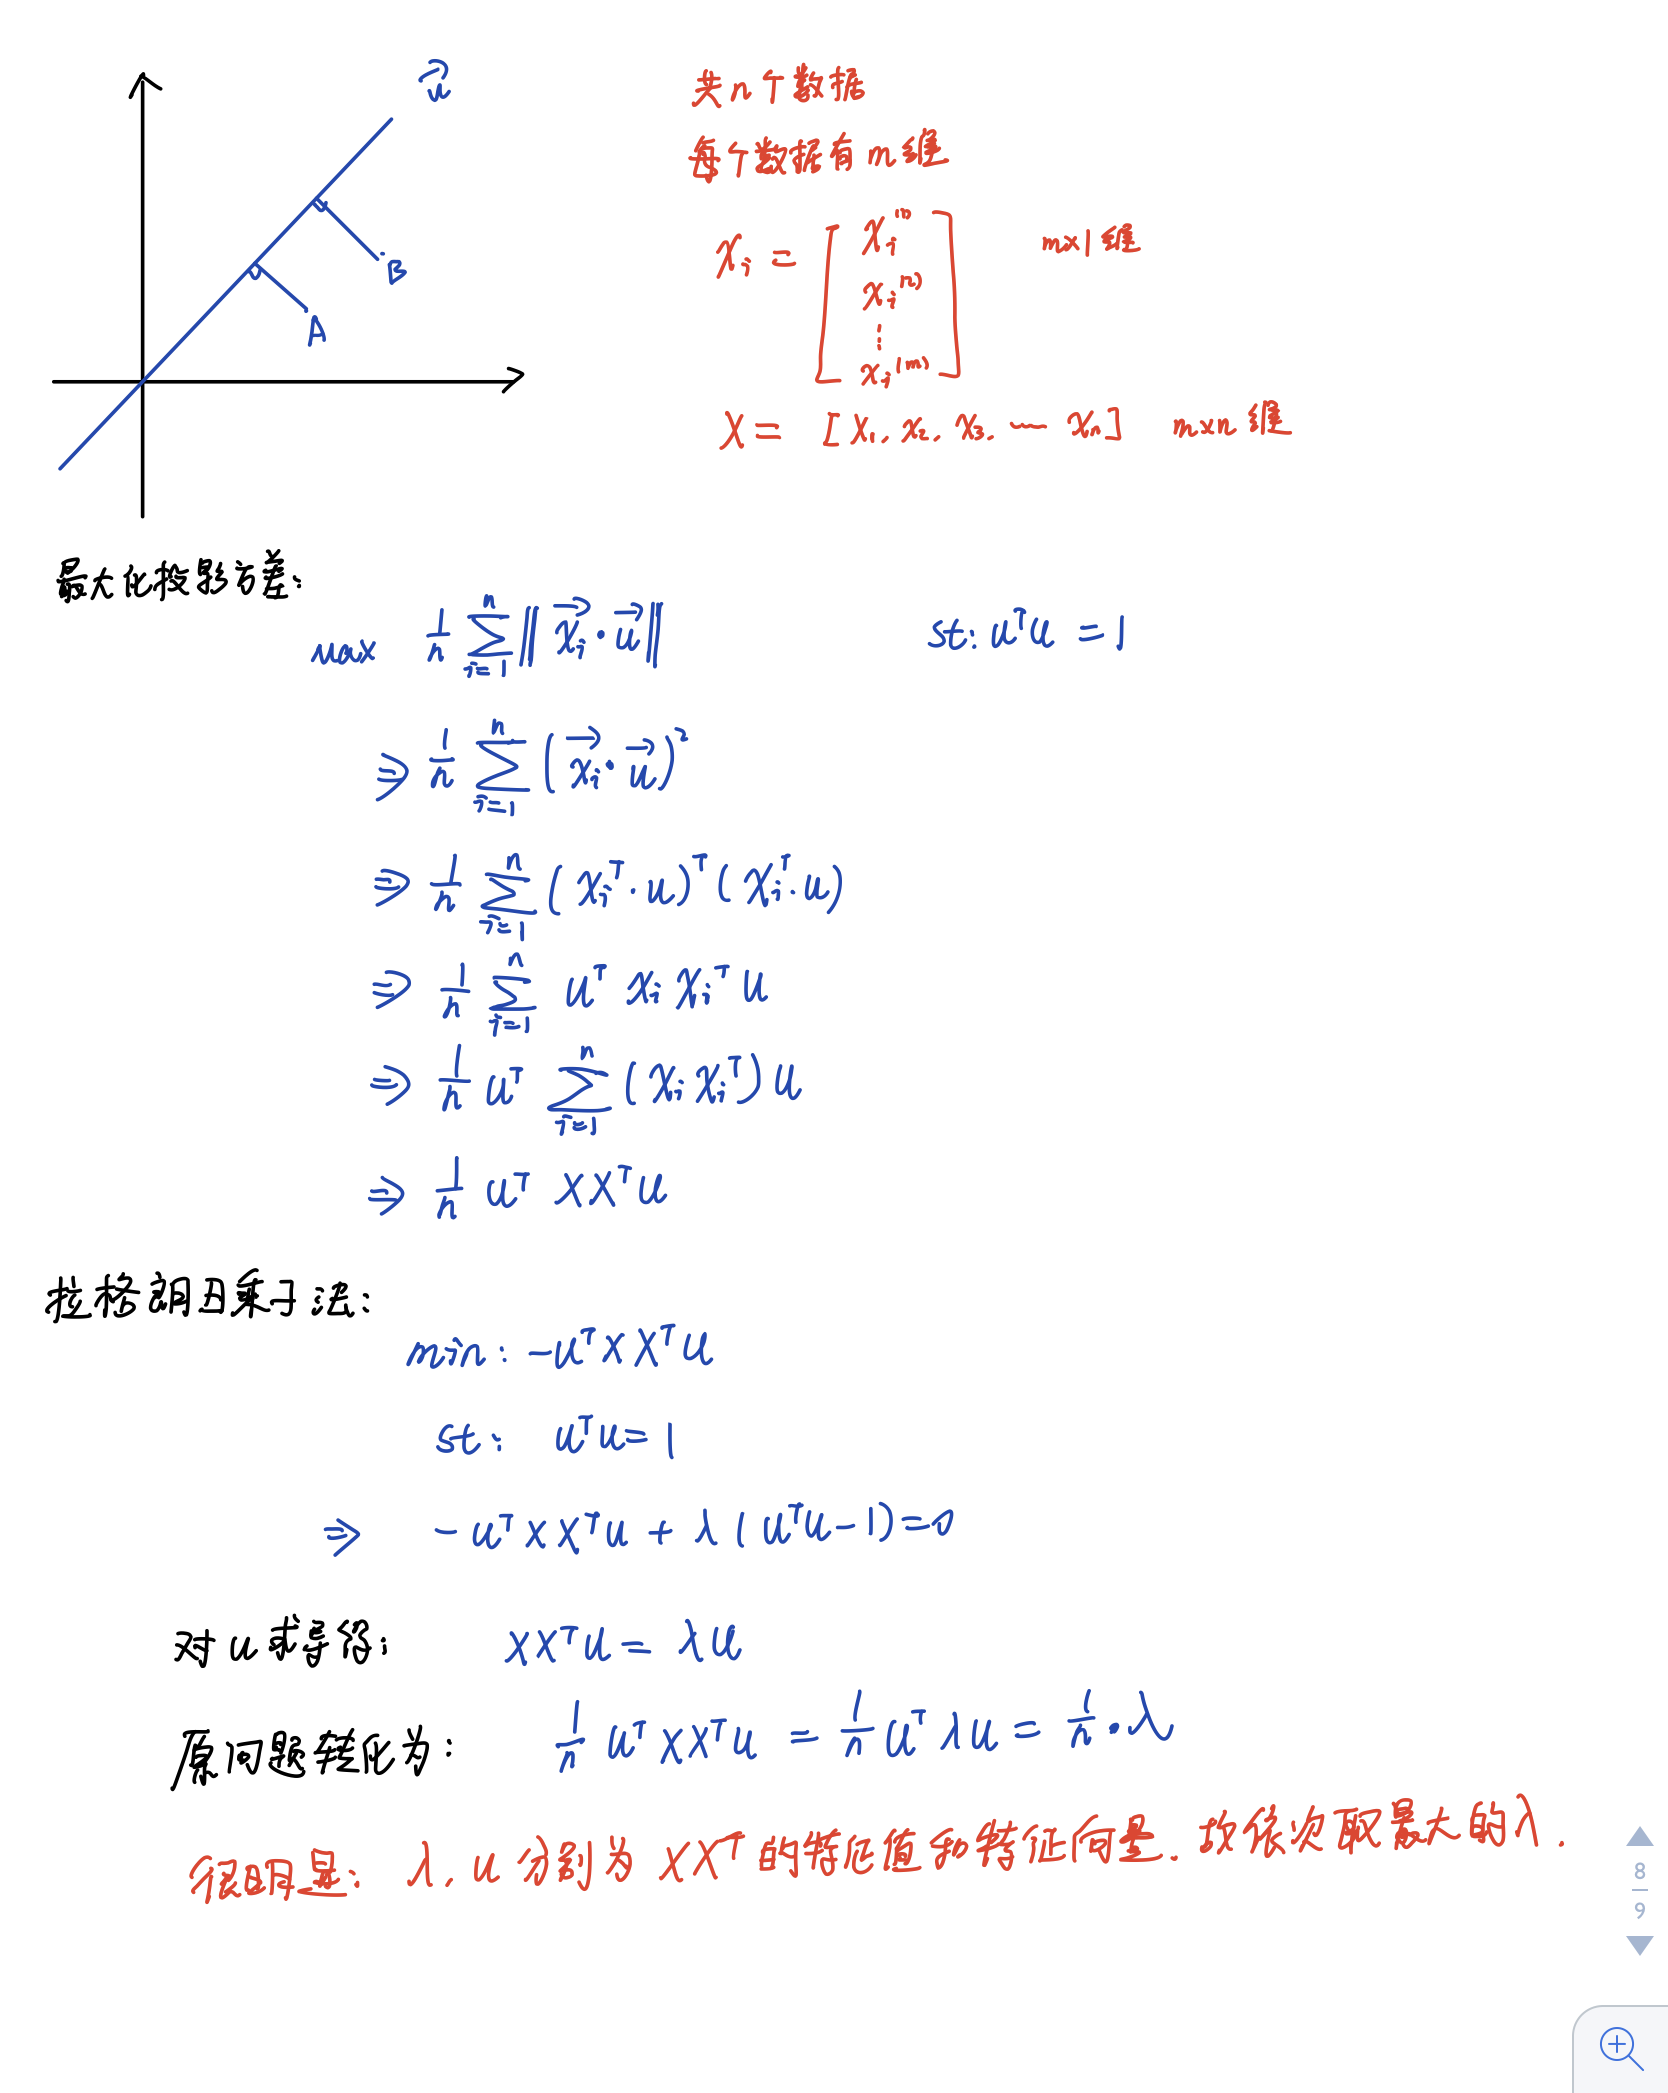 u⃗
B
A
共n个数据
每个数据有m维
xᵢ = [ xᵢ⁽¹⁾ xᵢ⁽²⁾ ⋮ xᵢ⁽ᵐ⁾ ] m×1维
X = [x₁, x₂, x₃, ⋯ xₙ] m×n维
最大化投影方差:
max 1/n Σᵢ₌₁ⁿ ‖x⃗ᵢ · u⃗‖ st: uᵀu = 1
⇒ 1/n Σᵢ₌₁ⁿ (x⃗ᵢ · u⃗)²
⇒ 1/n Σᵢ₌₁ⁿ (xᵢᵀ · u)ᵀ (xᵢᵀ · u)
⇒ 1/n Σᵢ₌₁ⁿ uᵀ xᵢ xᵢᵀ u
⇒ 1/n uᵀ Σᵢ₌₁ⁿ (xᵢ xᵢᵀ) u
⇒ 1/n uᵀ XXᵀu
拉格朗日乘子法:
min: -uᵀXXᵀu
st: uᵀu = 1
⇒ -uᵀXXᵀu + λ(uᵀu-1)=0
对u求导得: XXᵀu = λu
原问题转化为: 1/n uᵀXXᵀu = 1/n uᵀλu = 1/n · λ
很明显: λ, u 分别为 XXᵀ 的特征值和特征向量. 故依次取最大的λ.
8
9